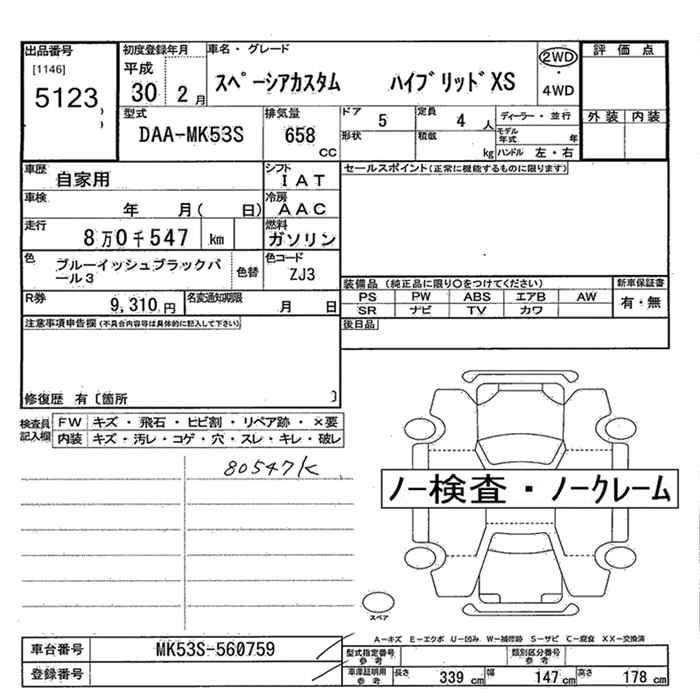 出品番号
[1146]
5123
初度登録年月
平成
30 2月
車名・グレード
スペーシアカスタム ハイブリッドXS
2WD
・
4WD
評価点
外装 内装
型式
DAA-MK53S
排気量
658
CC
ドア 5
形状
定員 4 人
積載 kg
ディーラー・並行
モデル年式 年
ハンドル 左・右
車歴
自家用
シフト
IAT
車検
年 月( 日)
冷房
AAC
走行
8万0千547 km
燃料
ガソリン
色
ブルーイッシュブラックパ
ール3
色替
色コード
ZJ3
R券
9,310円
名変通知期限
月 日
セールスポイント(正常に機能するものに限ります)
装備品(純正品に限り○をつけてください)
新車保証書
PS PW ABS エアB AW
SR ナビ TV カワ
有・無
後日品
注意事項申告欄(不具合内容等は具体的に記入して下さい)
修復歴 有〔箇所 〕
検査員
記入欄
FW キズ・飛石・ヒビ割・リペア跡・×要
内装 キズ・汚レ・コゲ・穴・スレ・キレ・破レ
80547K
ノー検査・ノークレーム
スペア
A-キズ E-エクボ U-凹み W-補修跡 S-サビ C-腐食 XX-交換済
車台番号 MK53S-560759
登録番号
型式指定番号
参考
類別区分番号
参考
車庫証明用
参考
長さ 339 cm 幅 147 cm 高さ 178 cm